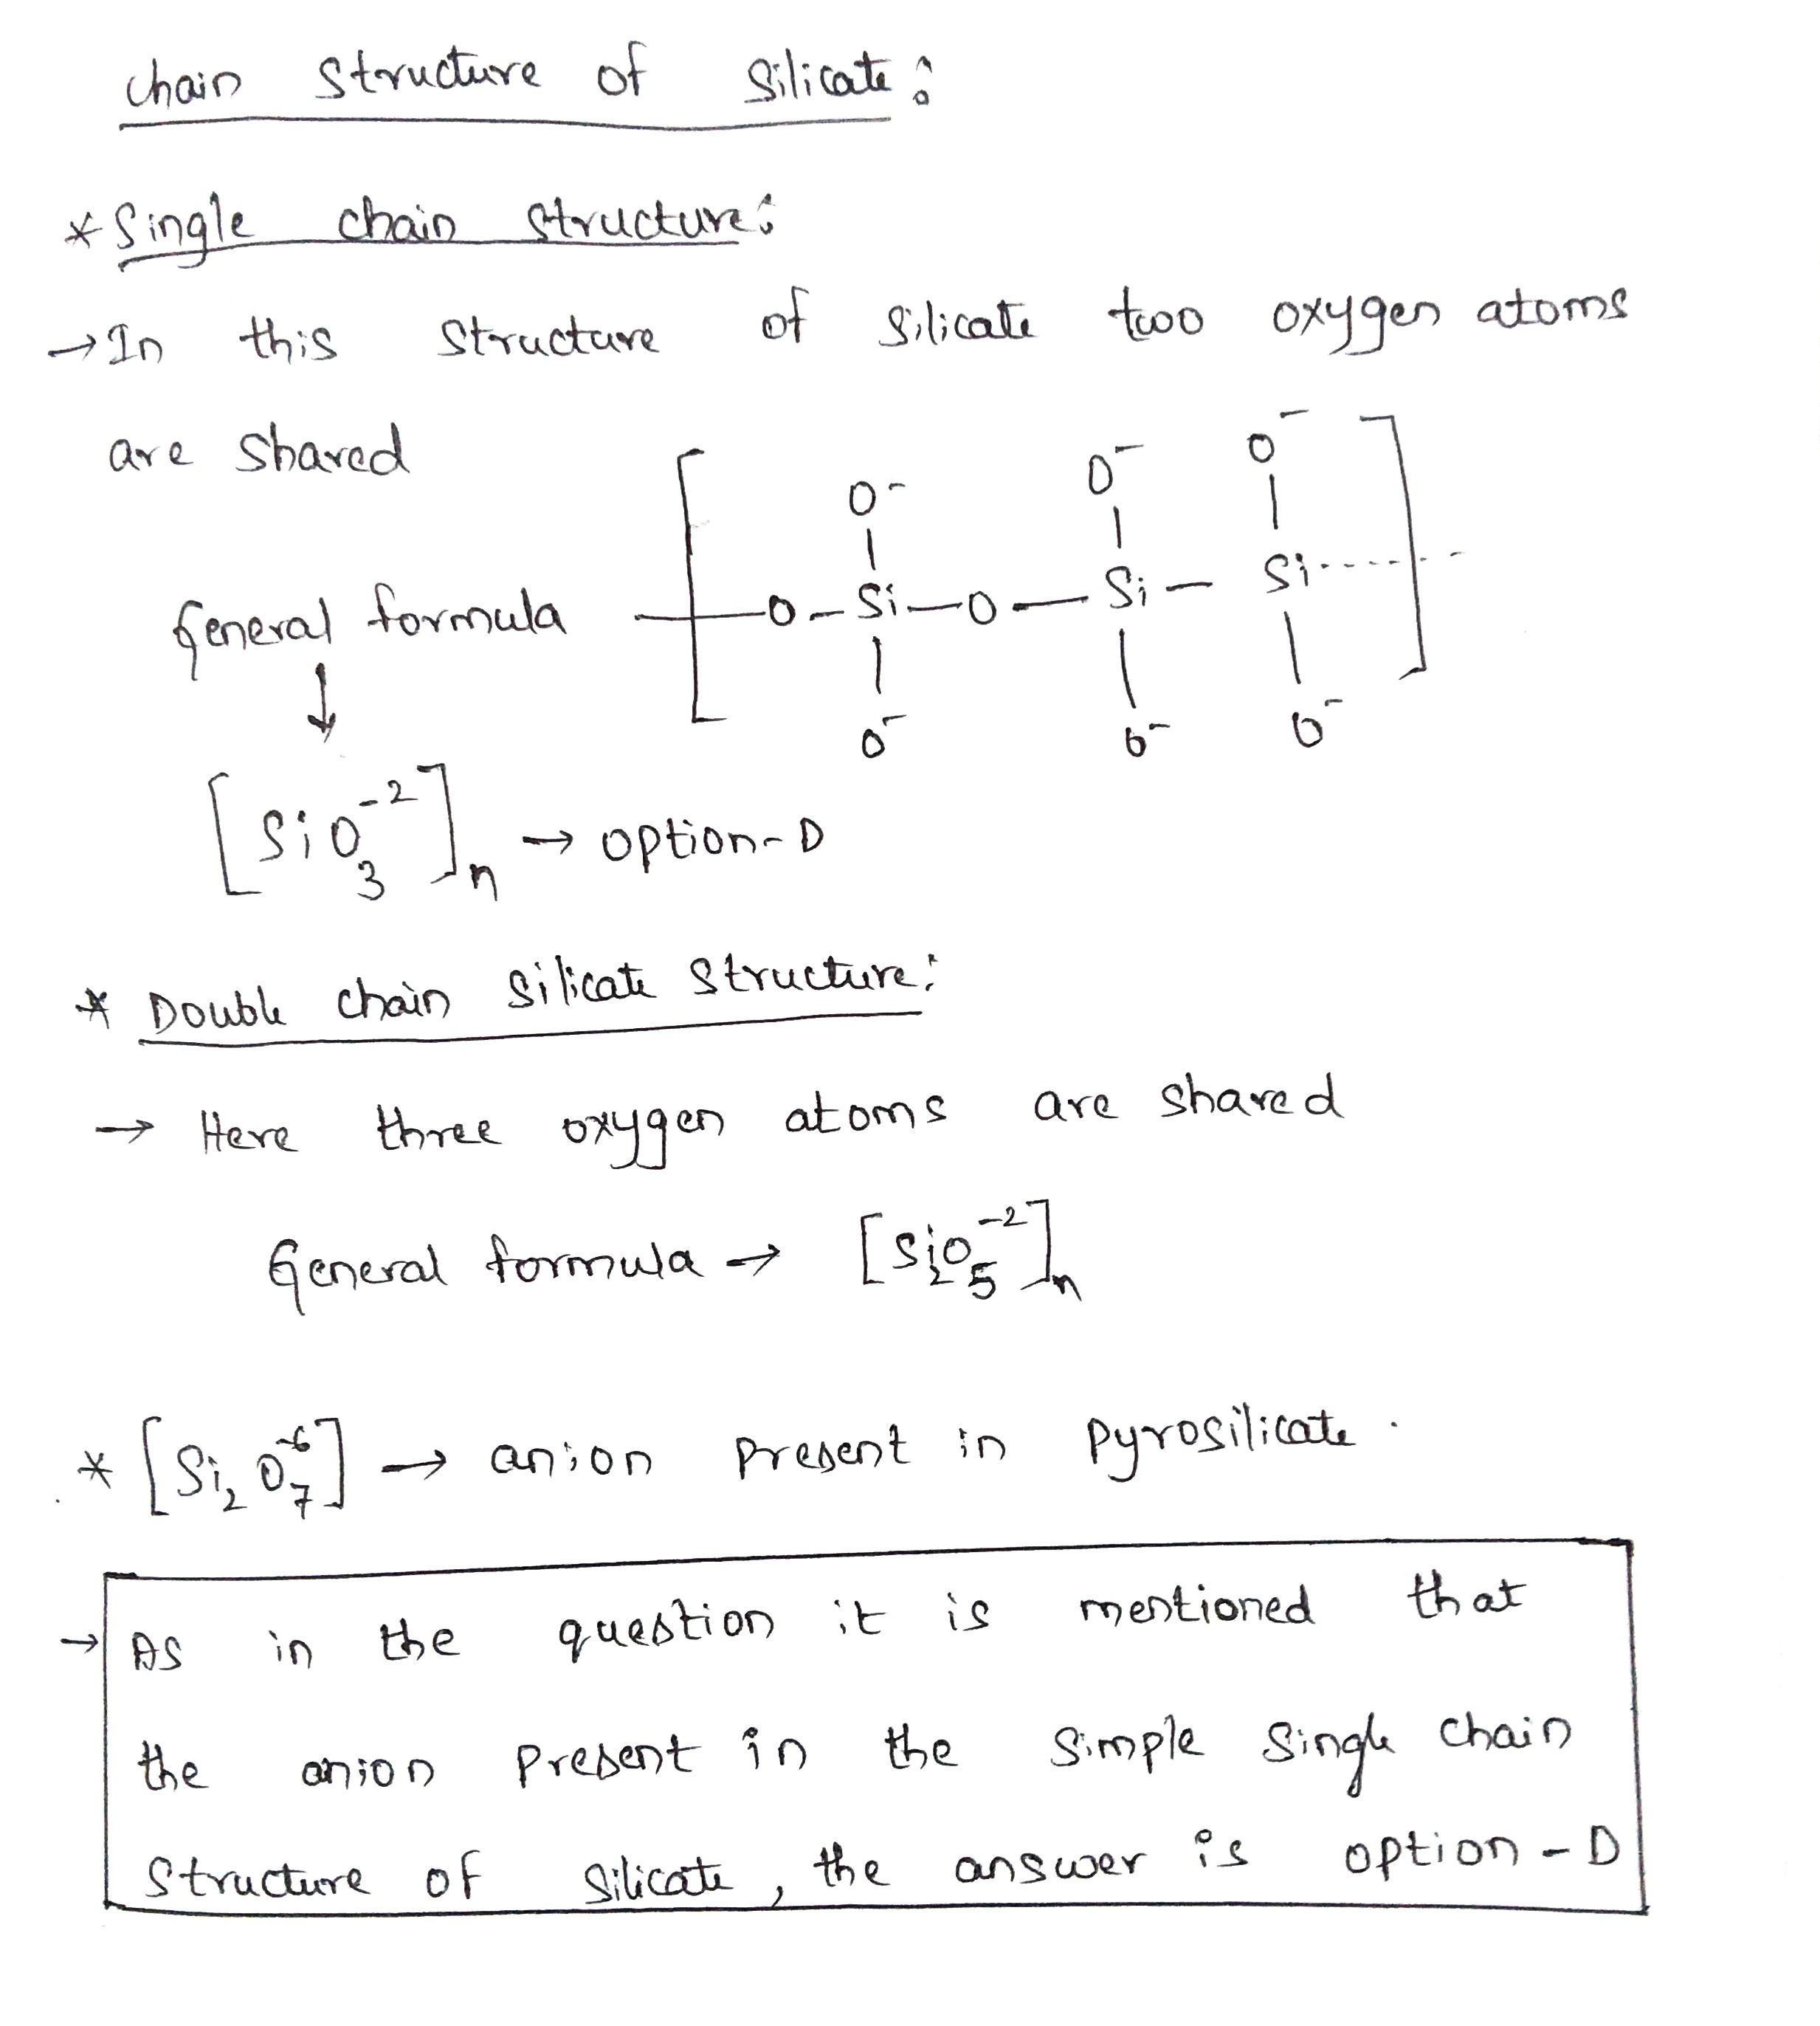 chain structure of silicate :
* Single chain structure :
→ In this structure of silicate two oxygen atoms
are shared
O⁻ O⁻ O⁻
General formula -O-Si-O-Si- Si.....
↓
O⁻ O⁻ O⁻
[SiO₃⁻²]ₙ → option-D
* Double chain silicate structure :
→ Here three oxygen atoms are shared
General formula → [Si₂O₅⁻²]ₙ
* [Si₂O₇⁻⁶] → anion present in pyrosilicate .
→ As in the question it is mentioned that
the anion present in the simple single chain
structure of silicate , the answer is option - D